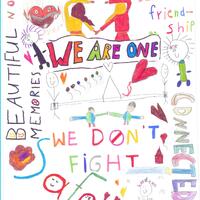 friend-
ship
BEAUTIFUL
MEMORIES
WE ARE ONE
WE DON'T
FIGHT
CONNECTED